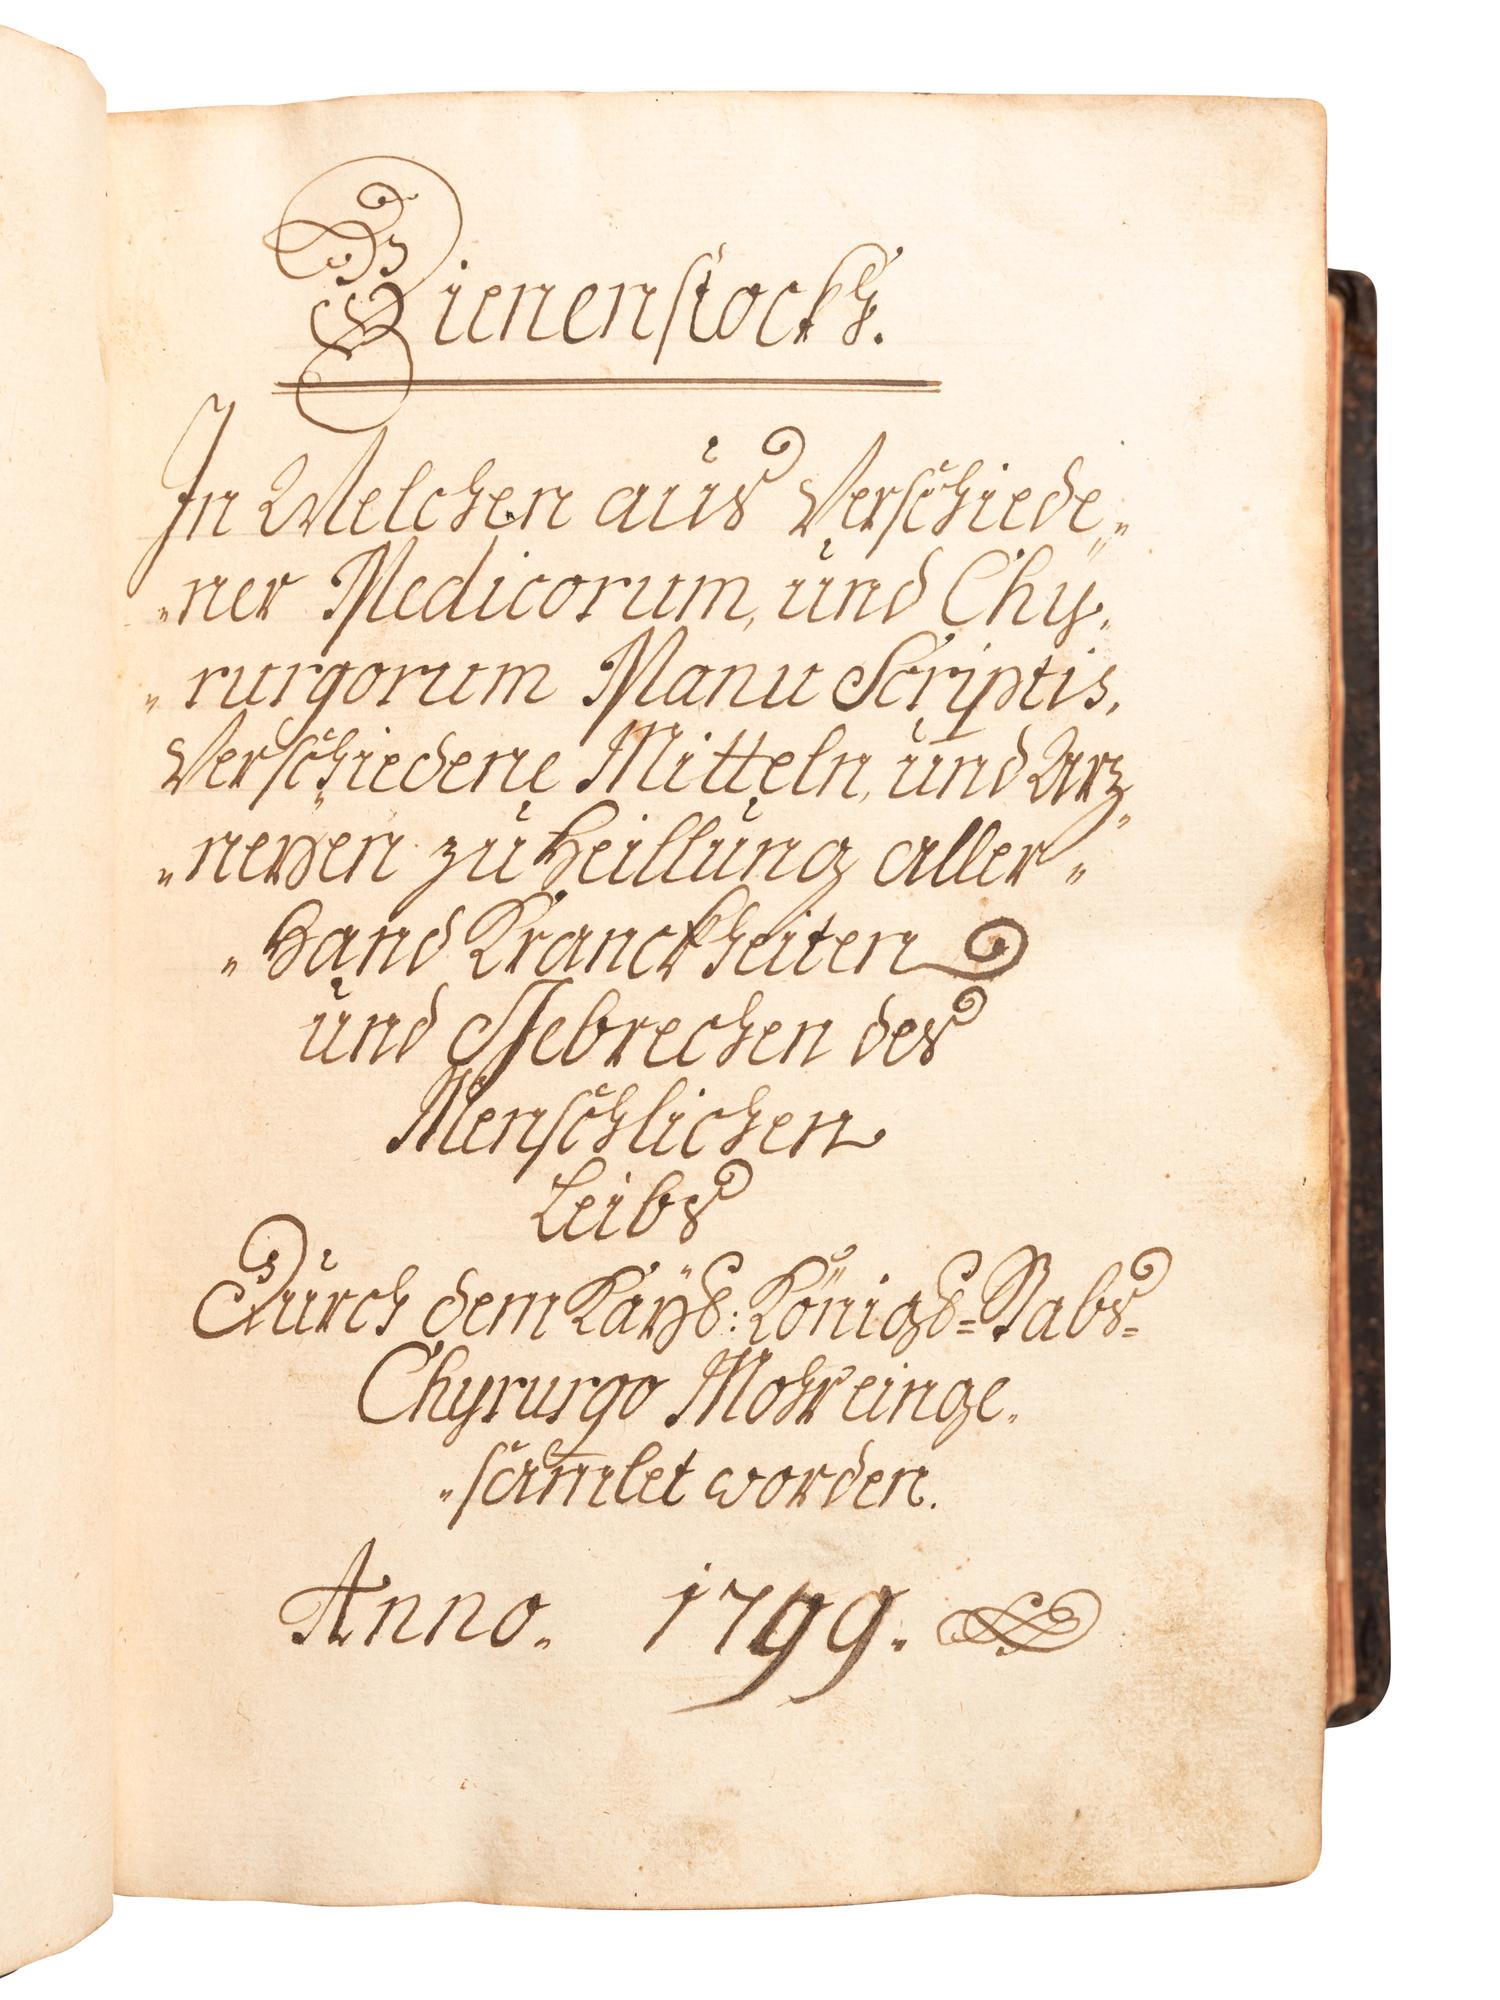 Bienenstockh.
In Welchen aus Verschiede„
„ner Medicorum, und Chy„
„rurgorum Manu Scriptis,
Verschiedene Mitteln, und Arz„
„neyen zu Heillung aller„
„Hand Kranckheiten
und Gebrechen des
Menschlichen
Leibs
Durch dem Kays: Königs= Stabs=
Chyrurgo Mohr einge„
„samlet worden.
Anno. 1799.